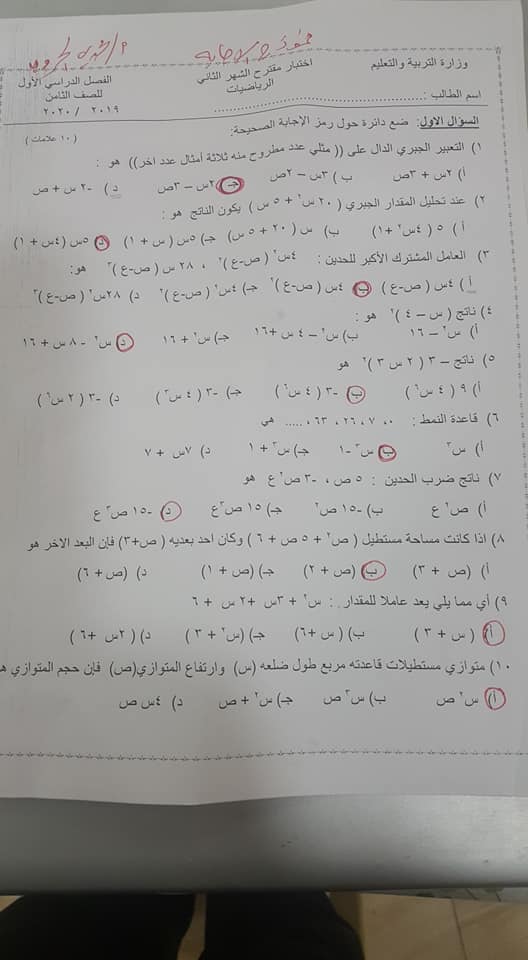 نموذج الإجابة
وزارة التربية والتعليم
اختبار مقترح الشهر الثاني
الرياضيات
الفصل الدراسي الأول
للصف الثامن
٢٠١٩ / ٢٠٢٠
اسم الطالب : ........................................
السؤال الاول: ضع دائرة حول رمز الإجابة الصحيحة: ( ١٠ علامات )
١) التعبير الجبري الدال على (( مثلي عدد مطروح منه ثلاثة أمثال عدد اخر)) هو :
أ) ٢س + ٣ص ب) ٣س – ٢ص جـ) ٢س – ٣ص د) -٢ س + ص
٢) عند تحليل المقدار الجبري ( ٢٠ س² + ٥ س ) يكون الناتج هو:
أ ) ٥ ( ٤س² + ١) ب) س ( ٢٠ + ٥ س) جـ) ٥س ( س + ١) د) ٥س (٤س + ١)
٣) العامل المشترك الأكبر للحدين : ٤س² ( ص-ع)² ، ٢٨ س ( ص-ع)³ هو:
أ) ٤س ( ص-ع) ب) ٤س ( ص-ع)² جـ) ٤س² ( ص-ع)² د) ٢٨س² ( ص-ع)³
٤) ناتج ( س – ٤ )² هو :
أ) س² – ١٦ ب) س² – ٤ س + ١٦ جـ) س² + ١٦ د) س² - ٨ س + ١٦
٥) ناتج – ٣ ( ٢ س³ )² هو
أ) ٩ ( ٤ س٦ ) ب) -٣ ( ٤ س٦ ) جـ) -٣ ( ٤ س٣ ) د) -٣ ( ٢ س٦ )
٦) قاعدة النمط : ٠ ، ٧ ، ٢٦ ، ٦٣ ، ..... هي
أ) س³ ب) س³ - ١ جـ) س³ + ١ د) ٧س + ٧
٧) ناتج ضرب الحدين : ٥ ص ، -٣ ص² ع هو
أ) ص² ع ب) -١٥ ص² جـ) ١٥ ص³ع د) -١٥ ص³ ع
٨) اذا كانت مساحة مستطيل ( ص² + ٥ ص + ٦ ) وكان احد بعديه ( ص+٣) فإن البعد الاخر هو
أ) (ص + ٣ ) ب) (ص + ٢) جـ) (ص + ١) د) (ص + ٦)
٩) أي مما يلي يعد عاملا للمقدار : س² + ٣س + ٢ س + ٦
أ) ( س + ٣ ) ب) ( س + ٦) جـ) (س² + ٣ ) د) ( ٢س + ٦ )
١٠) متوازي مستطيلات قاعدته مربع طول ضلعه (س) وارتفاع المتوازي(ص) فإن حجم المتوازي
أ) س² ص ب) س³ ص جـ) س² + ص د) ٤س ص